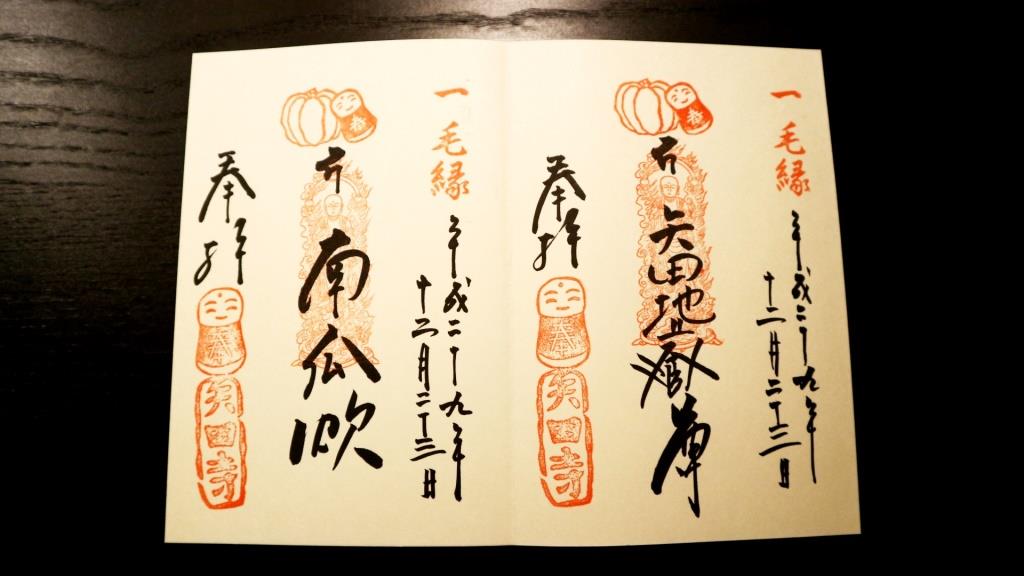 一毛縁
平成二十九年
十二月二十三日
矢田地蔵尊
奉拝
矢田寺
一毛縁
平成二十九年
十二月二十三日
南瓜
奉拝
矢田寺